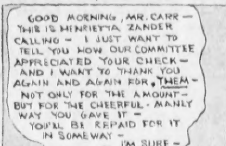 GOOD MORNING, MR. CARR —
THIS IS HENRIETTA ZANDER
CALLING — I JUST WANT TO
TELL YOU HOW OUR COMMITTEE
APPRECIATED YOUR CHECK —
AND I WANT TO THANK YOU
AGAIN AND AGAIN FOR THEM —
NOT ONLY FOR THE AMOUNT —
BUT FOR THE CHEERFUL - MANLY
WAY YOU GAVE IT —
YOU'LL BE REPAID FOR IT
IN SOMEWAY —
I'M SURE —